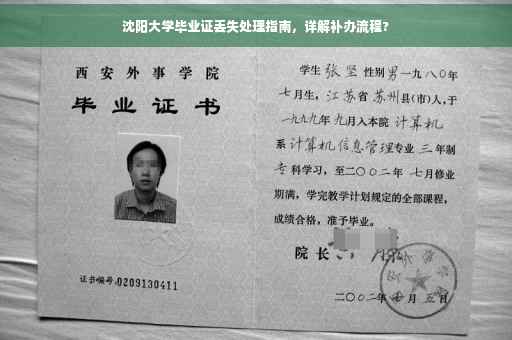 沈阳大学毕业证丢失处理指南，详解补办流程？
西安外事学院
毕业证书
证书编号:0209130411
学生张坚性别男一九八〇年
七月生，江苏省苏州县(市)人，于
一九九九年九月入本院计算机
系计算机信息管理专业三年制
专科学习，至二〇〇二年七月修业
期满，学完教学计划规定的全部课程，
成绩合格，准予毕业。
院长
二〇〇二年七月五日